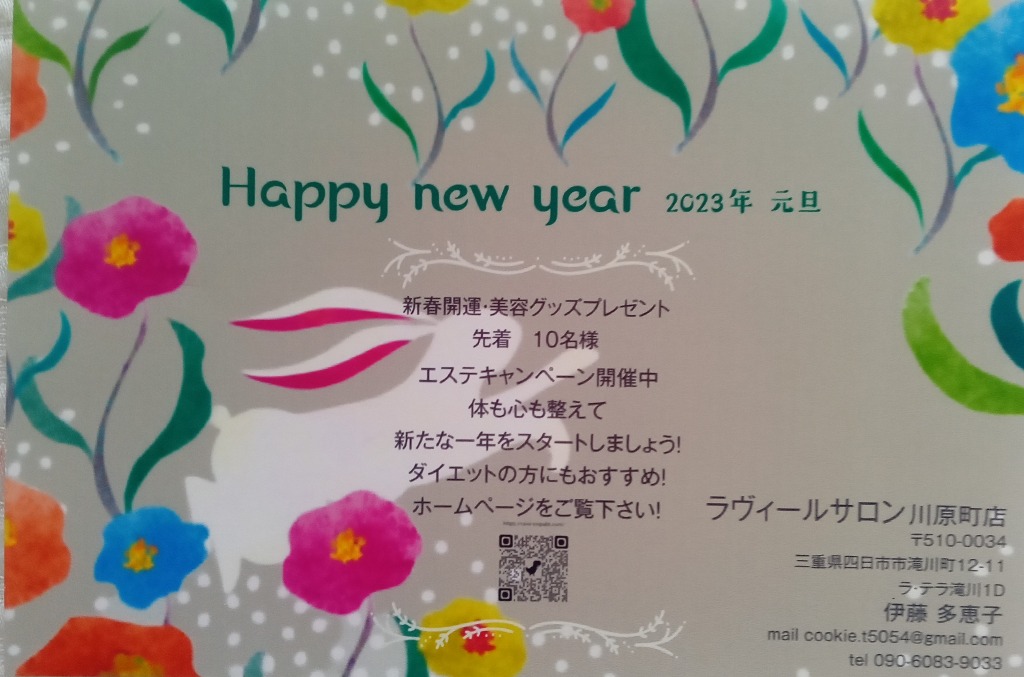 Happy new year 2023年 元旦
新春開運・美容グッズプレゼント
先着 10名様
エステキャンペーン開催中
体も心も整えて
新たな一年をスタートしましょう!
ダイエットの方にもおすすめ!
ホームページをご覧下さい!
ラヴィールサロン川原町店
〒510-0034
三重県四日市市滝川町12-11
ラ・テラ滝川1D
伊藤 多恵子
mail cookie.t5054@gmail.com
tel 090-6083-9033